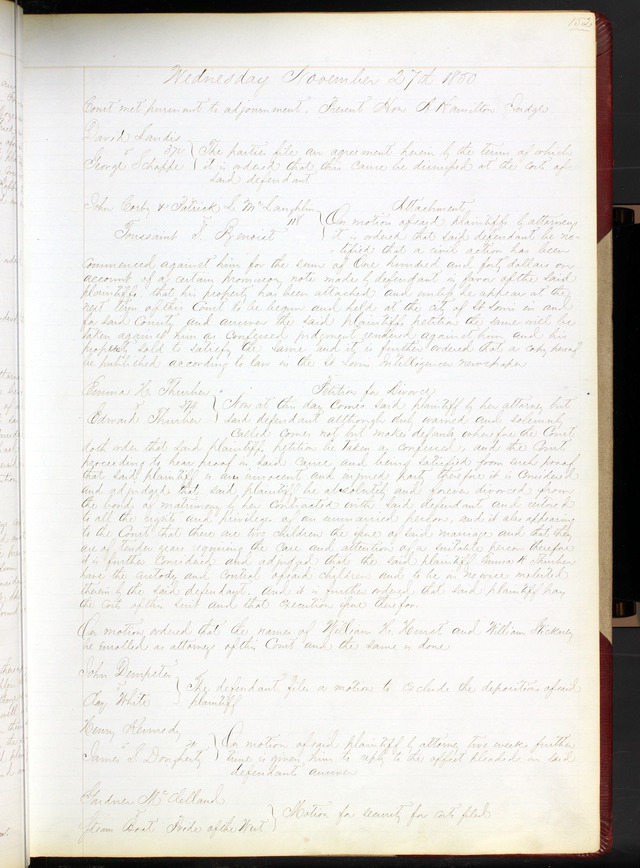 152
Wednesday November 27th 1850
Court met pursuant to adjournment. Present Hon A Hamilton Judge
David Landis
vs
George Schappe
The parties file an agreement herein by the terms of which
it is ordered that this cause be dismissed at the costs of
said defendant
John Corby & Patrick S. McLaughlin
vs
Toussaint S. Benoist
Attachment
On motion of said plaintiffs by attorney
it is ordered that said defendant be no-
tified that a suit action has been
commenced against him for the sum of One hundred and forty dollars on
account of a certain promissory note made by defendant in favor of the said
plaintiffs, that his property has been attached and unless he appear at the
next term of this Court to be begun and held at the city of St Louis in and
for said County and answer the said plaintiffs petition the same will be
taken against him as confessed judgment rendered against him and his
property sold to satisfy the same and it is further ordered that a copy hereof
be published according to law in the St Louis Intelligencer newspaper
Emma H. Thurber
vs
Edward Thurber
Petition for Divorce
Now at this day comes said plaintiff by her attorney but
said defendant although duly warned and solemnly
called comes not but makes default wherefore the Court
doth order that said plaintiffs petition be taken as confessed, and the Court
proceeding to hear proof in said cause and being satisfied from such proof
that said plaintiff is an innocent and injured party therefore it is considered
and adjudged that said plaintiff be absolutely and forever divorced from
the bonds of matrimony by her contracted with said defendant and restored
to all the rights and privileges of an unmarried person, and it also appearing
to the Court that there are two children the issue of said marriage and that they
are of tender years requiring the care and attention of a suitable person therefore
it is further Considered and adjudged that the said plaintiff Emma H Thurber
have the custody and control of said children and to be in no wise molested
therein by the said defendant. And it is further ordered that said plaintiff pay
the costs of this suit and that execution issue therefor.
On motion ordered that the names of William H. Hurst and William Hickney
be enrolled as attorneys of this Court and the same is done
John Dempster
vs
Clay White
The defendant files a motion to exclude the depositions of said
plaintiff
Henry Kennedy
vs
James S. Dougherty
On motion of said plaintiff by attorney two weeks further
time is given him to reply to the offset pleaded in said
defendants answer
Gardner McClelland
vs
Steam Boat Pride of the West
Motion for security for costs filed